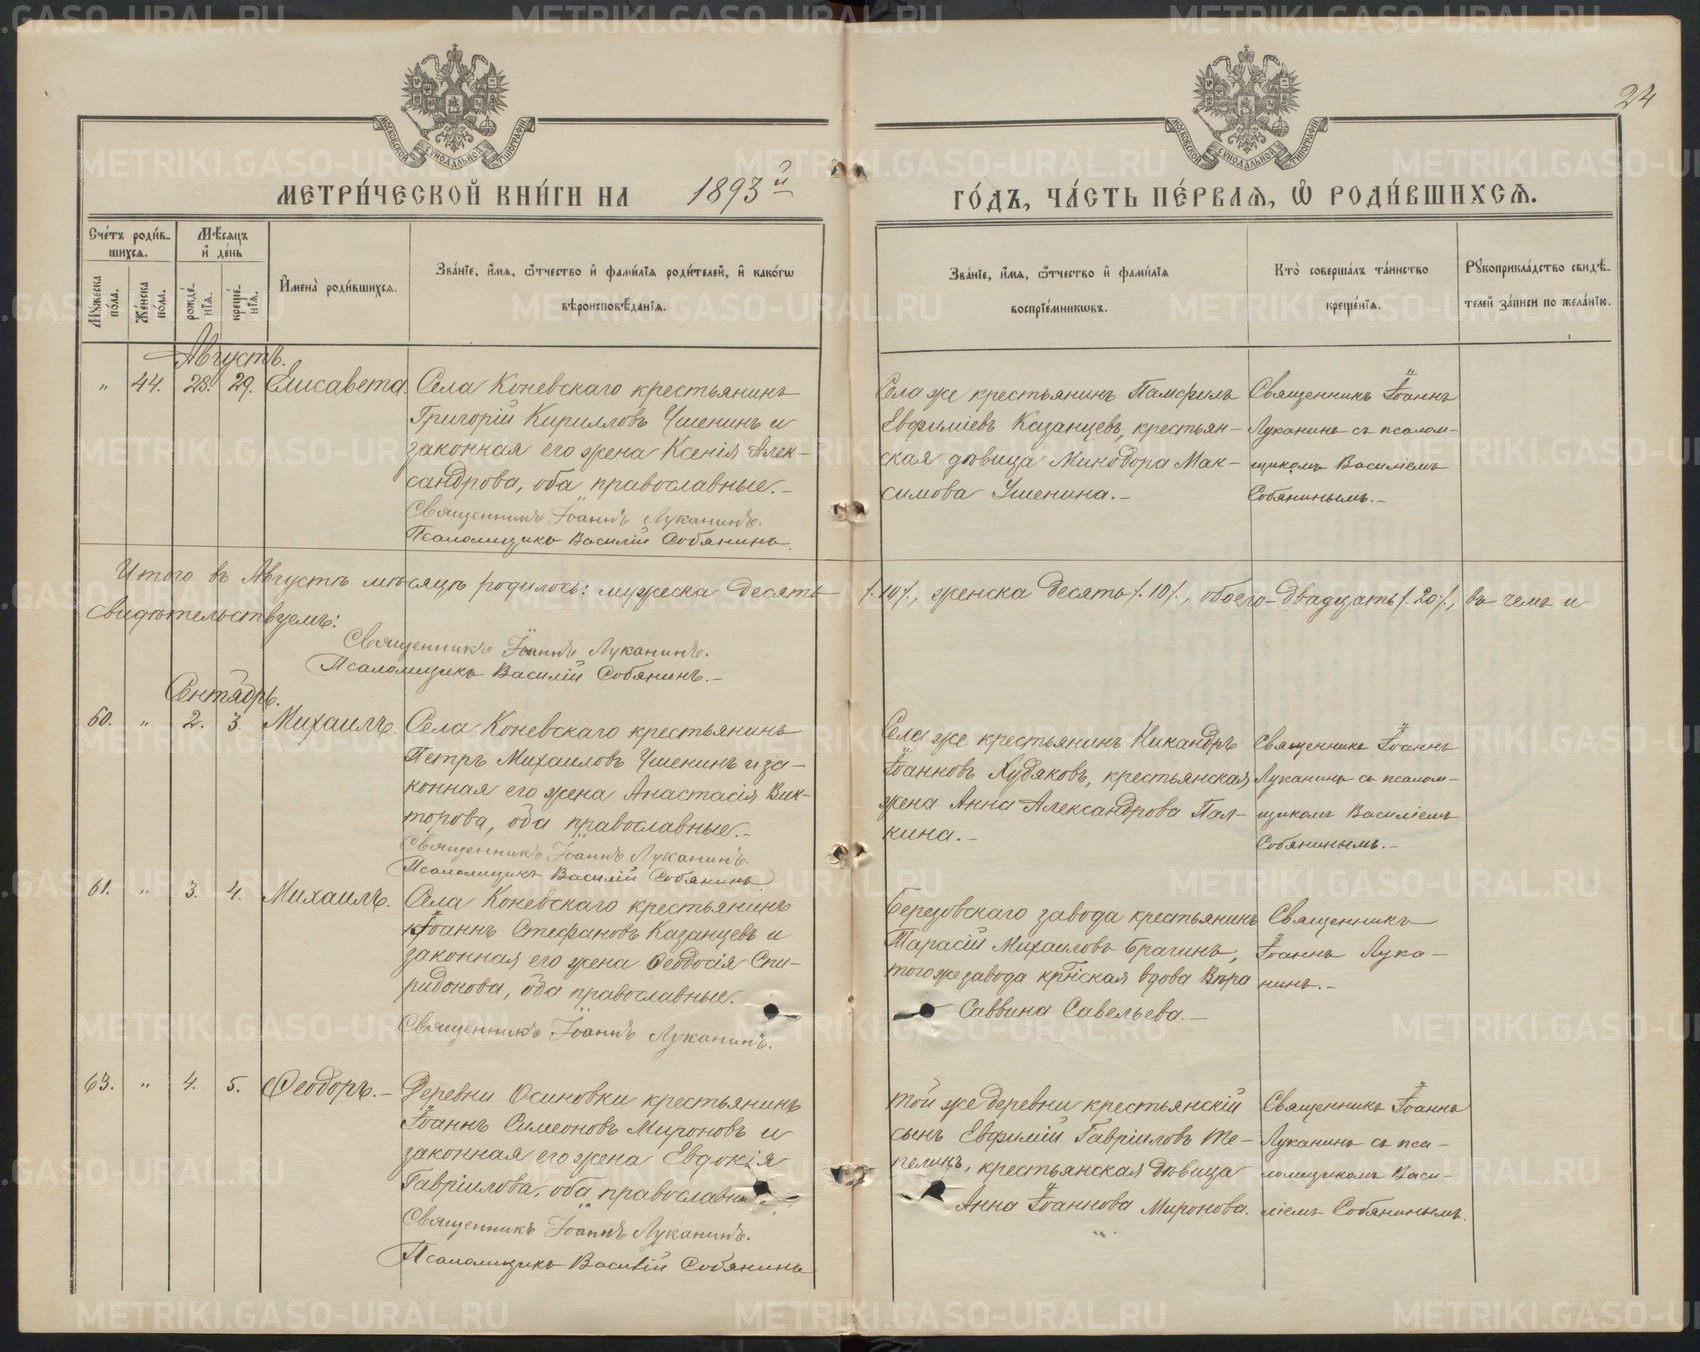 24
МОСКОВСКОЙ СѴНОДАЛЬНОЙ ТИПОГРАФІИ
МОСКОВСКОЙ СѴНОДАЛЬНОЙ ТИПОГРАФІИ
МЕТРИ́ЧЕСКОЙ КНИ́ГИ НА 1893й ГО́ДЪ, ЧА́СТЬ ПЕ́РВАѦ, Ѡ РОДИ́ВШИХСѦ.
Сче́тъ роди́в-
шихсѧ.
Мѣ́сѧцъ
и҆ де́нь
Мꙋ́жеска по́ла.
Же́нска по́ла.
рожде́-нїѧ.
креще́-нїѧ.
И҆мена̀ роди́вшихсѧ.
Зва́нїе, и҆́мѧ, ѻ҆́тчество и҆ фами́лїѧ роди́телей, и҆ како́гѡ
вѣроисповѣ́данїѧ.
Зва́нїе, и҆́мѧ, ѻ҆́тчество и҆ фами́лїѧ
воспрїе́мникѡвъ.
Кто̀ соверша́лъ та́инство
креще́нїѧ.
Рꙋкоприкла́дство свидѣ́-
телей за́писи по жела́нїю.
Августъ.
" 44. 28. 29. Елисавета.
Села Коневскаго крестьянинъ
Григорій Кирилловъ Ушенинъ и
законная его жена Ксенія Алек-
сандрова, оба православные.-
Священникъ Іоаннъ Луканинъ.
Псаломщикъ Василій Собянинъ.
Села же крестьянинъ Памфилъ
Евфиміевъ Казанцевъ, крестьян-
ская дѣвица Минодора Мак-
симова Ушенина.-
Священникъ Іоаннъ
Луканинъ съ псалом-
щикомъ Василіемъ
Собянинымъ.-
Итого въ Августѣ мѣсяцѣ родилось: мужеска десять /.10/., женска десять /.10/., обоего двадцать /.20/., въ чемъ и
свидѣтельствуемъ:
Священникъ Іоаннъ Луканинъ.
Псаломщикъ Василій Собянинъ.-
Сентябрь.
60. " 2. 3. Михаилъ.
Села Коневскаго крестьянинъ
Петръ Михаиловъ Ушенинъ и за-
конная его жена Анастасія Вик-
торова, оба православные.-
Священникъ Іоаннъ Луканинъ.
Псаломщикъ Василій Собянинъ
Села же крестьянинъ Никандръ
Іоанновъ Худяковъ, крестьянская
жена Анна Александрова Пал-
кина.-
Священникъ Іоаннъ
Луканинъ съ псалом-
щикомъ Василіемъ
Собянинымъ.-
61. " 3. 4. Михаилъ.
Села Коневскаго крестьянинъ
Іоаннъ Стефановъ Казанцевъ и
законная его жена Ѳеодосія Спи-
ридонова, оба православные.
Священникъ Іоаннъ Луканинъ.
Березовскаго завода крестьянинъ
Тарасій Михаиловъ Брагинъ,
того же завода крт҃нская вдова Вѣра
Саввина Савельева.-
Священникъ
Іоаннъ Лука-
нинъ.-
63. " 4. 5. Ѳеодоръ.-
Деревни Осиновки крестьянинъ
Іоаннъ Симеоновъ Мироновъ и
законная его жена Евдокія
Гавріилова, оба православные
Священникъ Іоаннъ Луканинъ.
Псаломщикъ Василій Собянинъ
той же деревни крестьянскій
сынъ Евфимій Гавріиловъ Те-
пелинъ, крестьянская дѣвица
Анна Іоаннова Миронова.
Священникъ Іоаннъ
Луканинъ съ пса-
ломщикомъ Васи-
ліемъ Собянинымъ.
METRIKI.GASO-URAL.RU